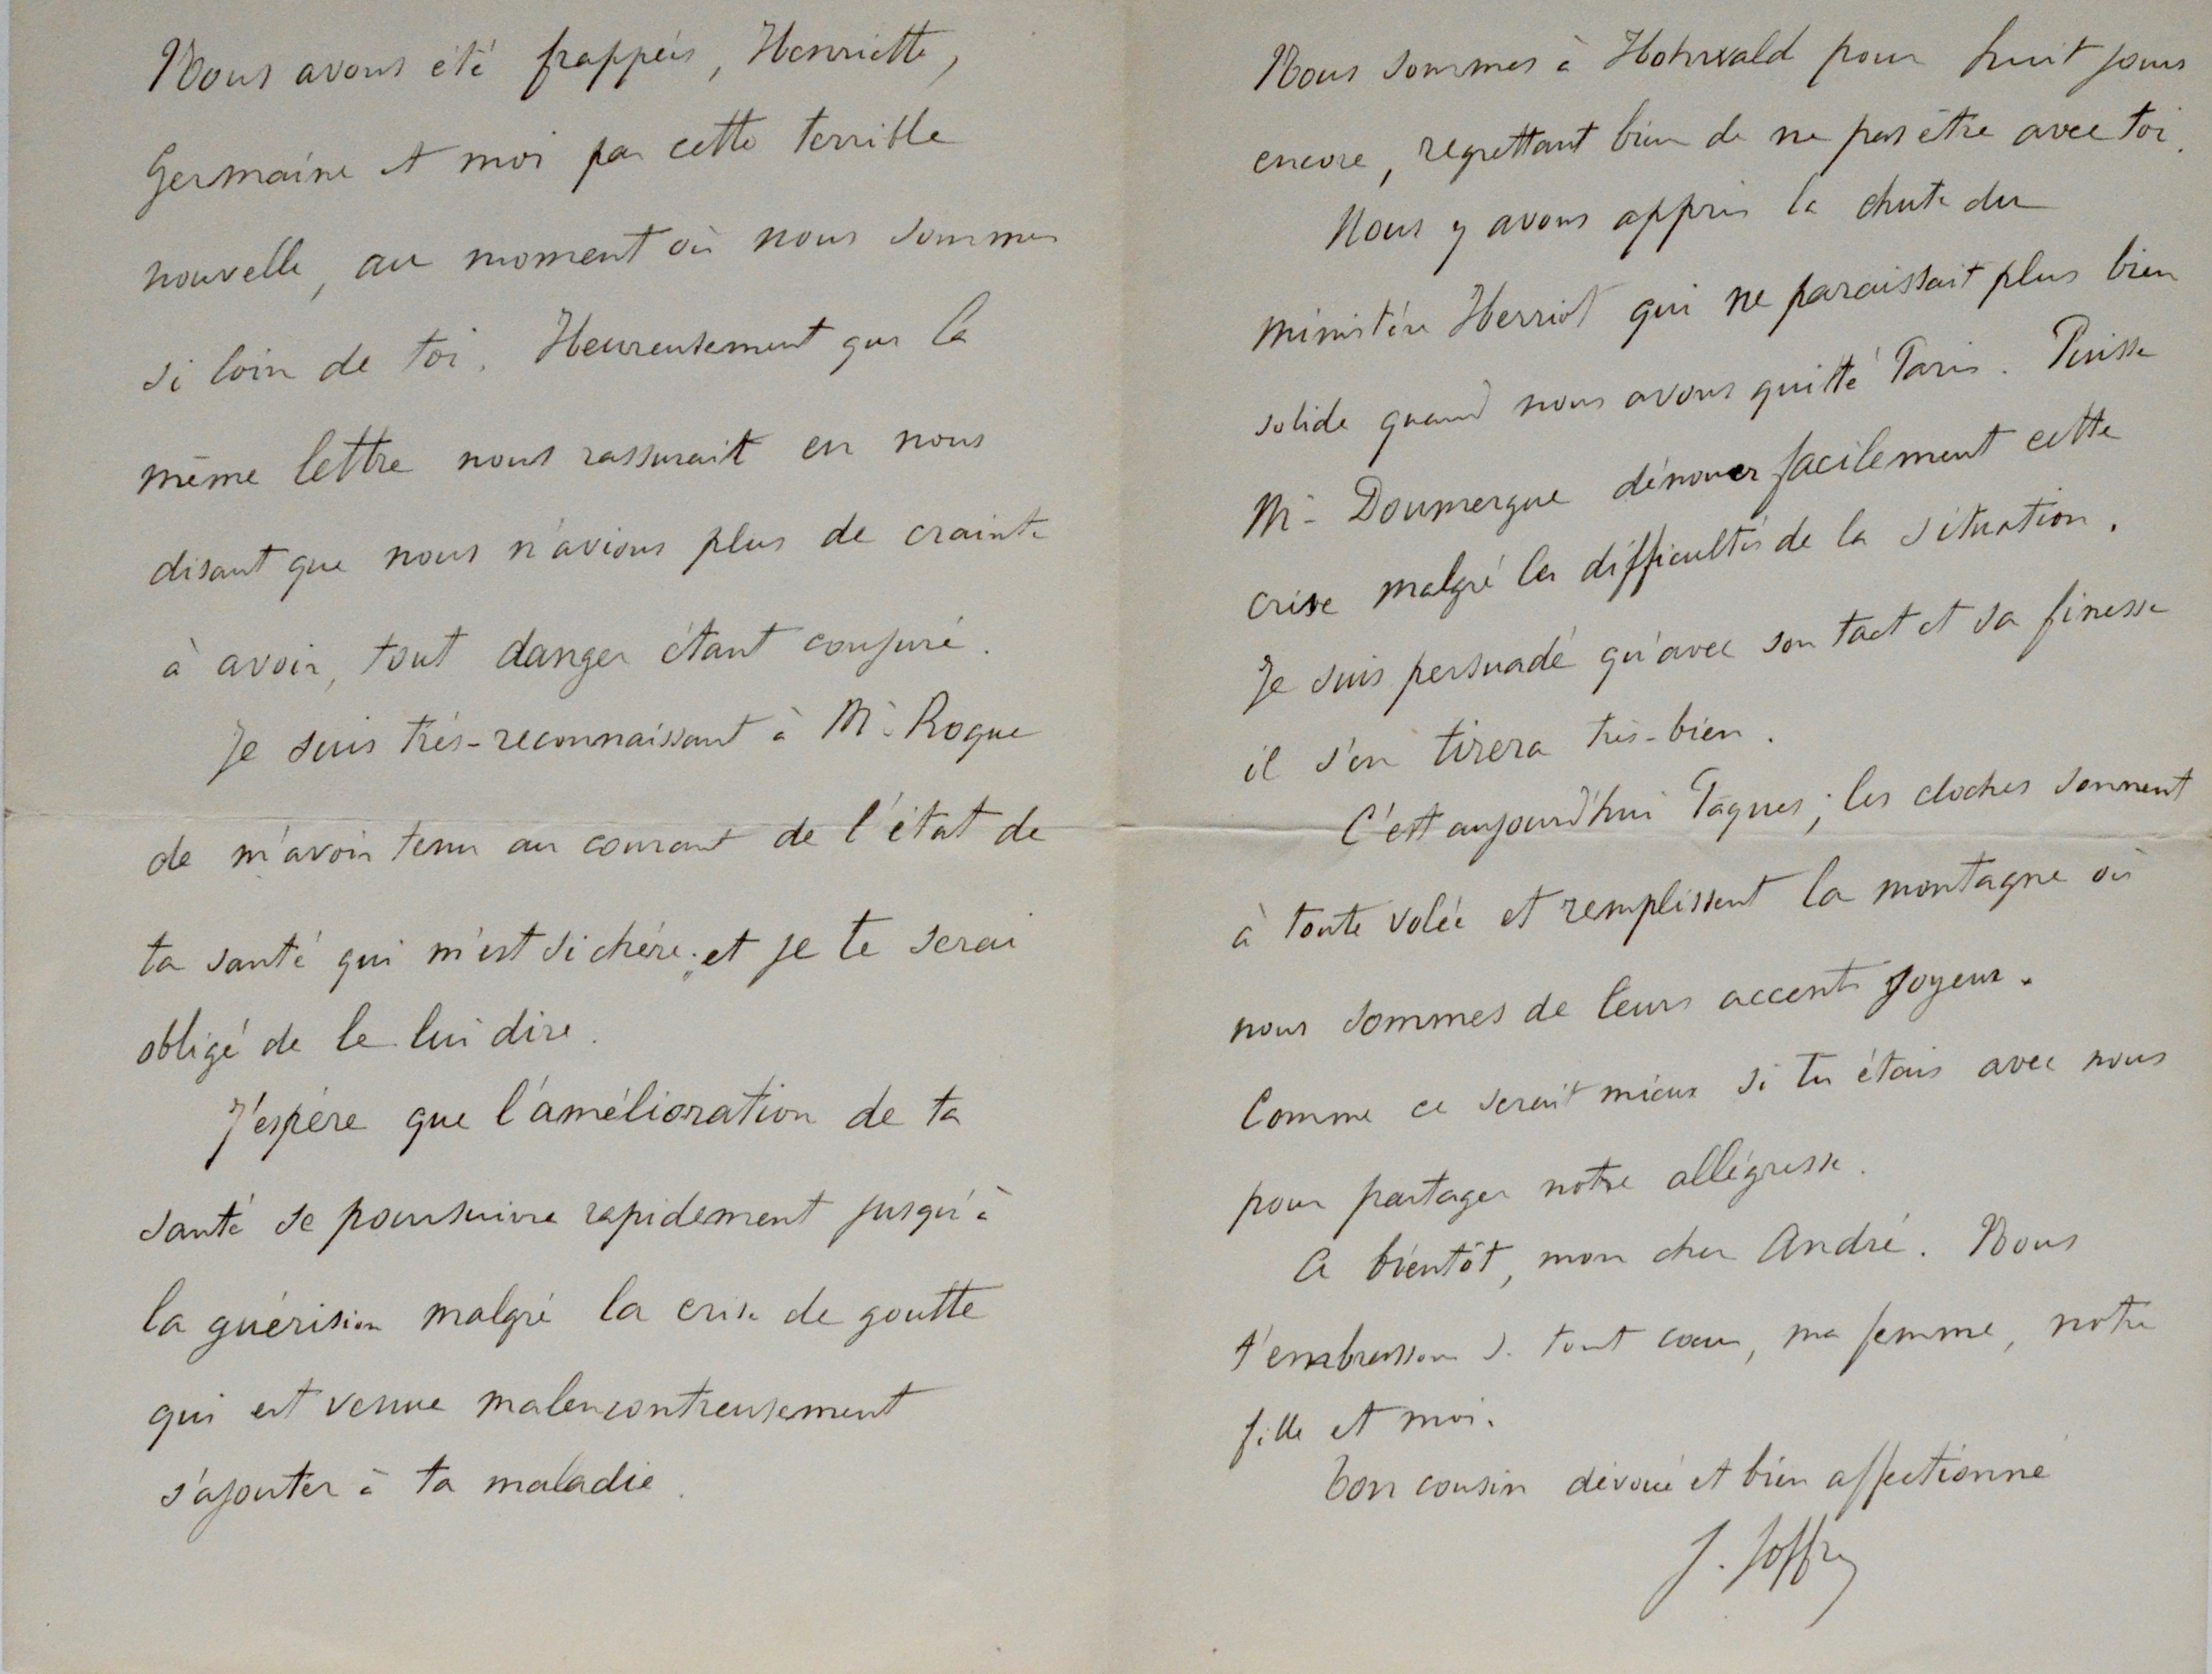 Nous avons été frappés, Henriette,
Germaine et moi par cette terrible
nouvelle, au moment où nous sommes
si loin de toi. Heureusement que la
même lettre nous rassurait en nous
disant que nous n'avions plus de crainte
à avoir, tout danger étant conjuré.
Je suis très-reconnaissant à Mr Rogue
de m'avoir tenu au courant de l'état de
ta santé qui m'est si chère et je te serai
obligé de le lui dire.
J'espère que l'amélioration de ta
santé se poursuivra rapidement jusqu'à
la guérision malgré la crise de goutte
qui est venue malencontreusement
s'ajouter à ta maladie.
Nous sommes à Hohwald pour huit jours
encore, regrettant bien de ne pas être avec toi.
Nous y avons appris la chute du
ministère Herriot qui ne paraissait plus bien
solide quand nous avons quitté Paris. Puisse
Mr Doumergue dénouer facilement cette
crise malgré les difficultés de la situation.
Je suis persuadé qu'avec son tact et sa finesse
il s'en tirera très-bien.
C'est aujourd'hui Pâques ; les cloches sonnent
à toute volée et remplissent la montagne où
nous sommes de leurs accents joyeux.
Comme ce serait mieux si tu étais avec nous
pour partager notre allégresse.
A bientôt, mon cher André. Nous
t'embrassons de tout coeur, ma femme, notre
fille et moi.
Ton cousin dévoué et bien affectionné
J. Joffre